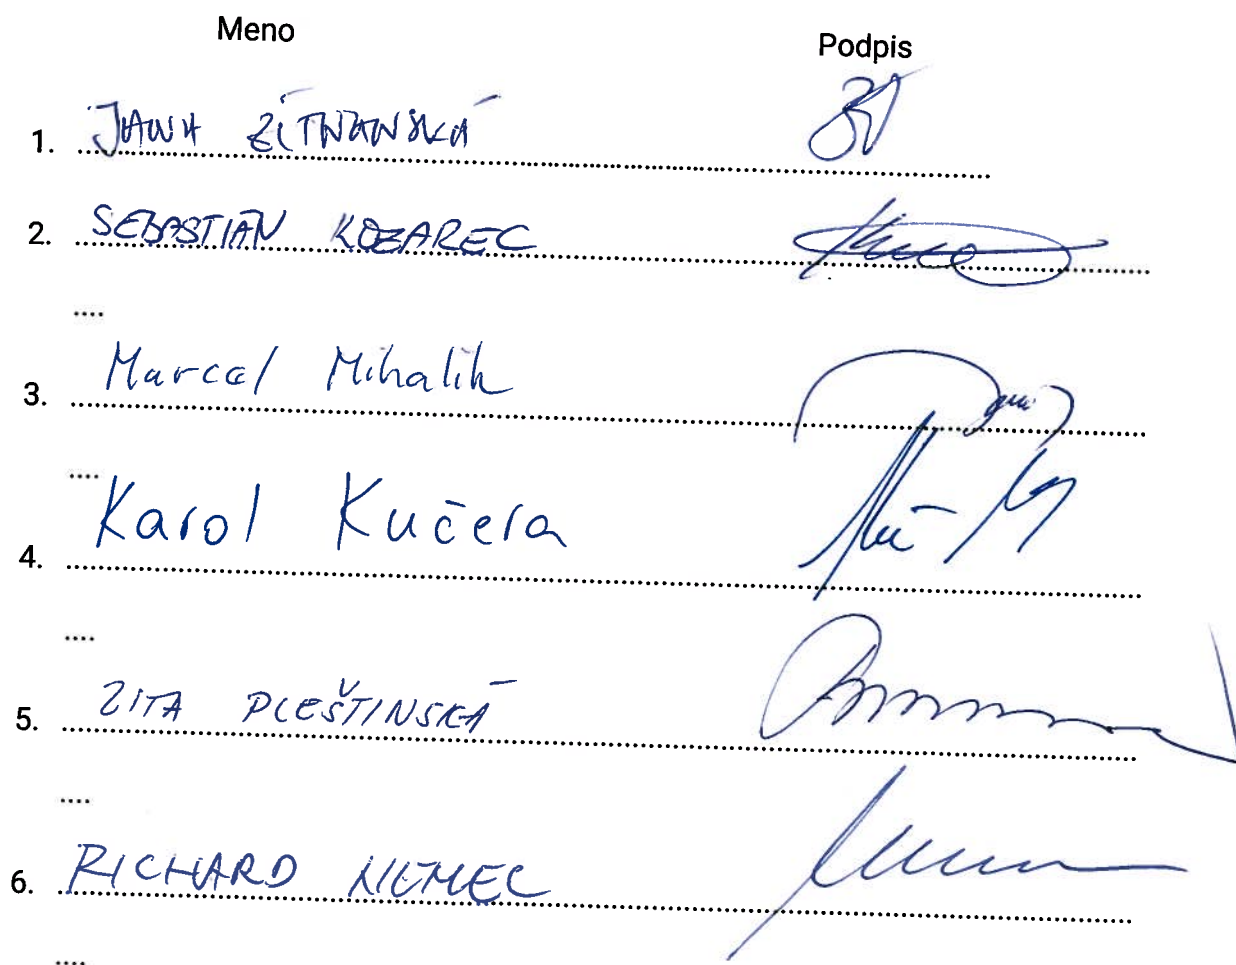 Meno Podpis
1. JANA ŽITŇANSKÁ
2. SEBASTIÁN KOZAREC
....
3. Marcel Mihalik
....
4. Karol Kučera
....
5. ZITA PLEŠTINSKÁ
....
6. RICHARD NEMEC
....